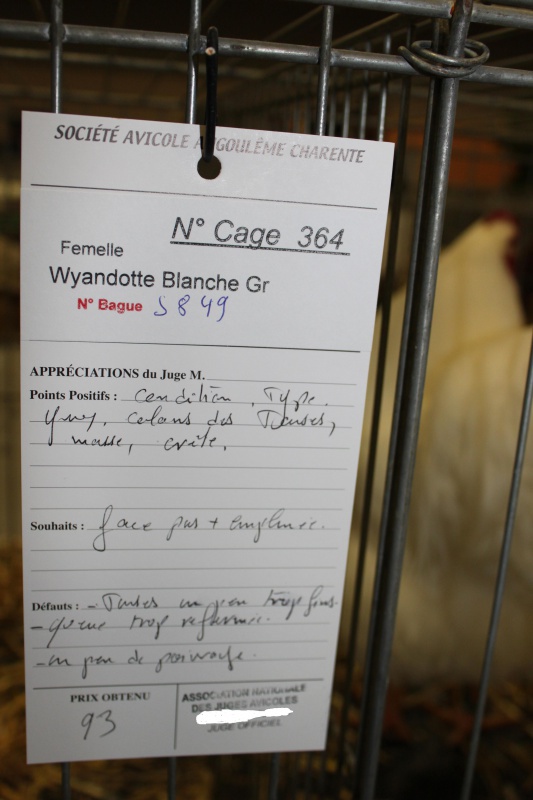 SOCIÉTÉ AVICOLE ANGOULÊME CHARENTE
N° Cage 364
Femelle
Wyandotte Blanche Gr
N° Bague S849
APPRÉCIATIONS du Juge M.
Points Positifs : Condition, Type,
des Tarses,
masse, crête.
Souhaits : face pas +
Défauts : - Tarses un peu trop fins.
- queue trop refermée.
- un peu de
PRIX OBTENU
93
ASSOCIATION NATIONALE
DES JUGES AVICOLES
JUGE OFFICIEL